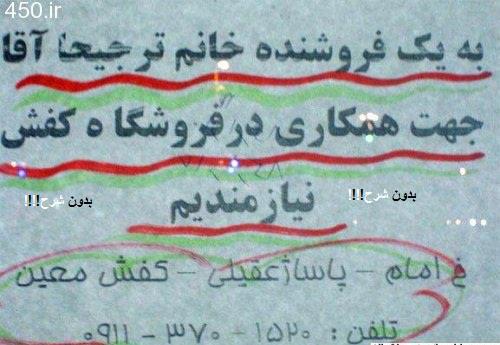 450.ir
به یک فروشنده خانم ترجیحا آقا
جهت همکاری در فروشگاه کفش
نیازمندیم
بدون شرح!!
بدون شرح!!
خ امام - پاساژ عقیلی - کفش معین
تلفن : ۱۵۲۰ - ۳۷۰ - ۰۹۱۱